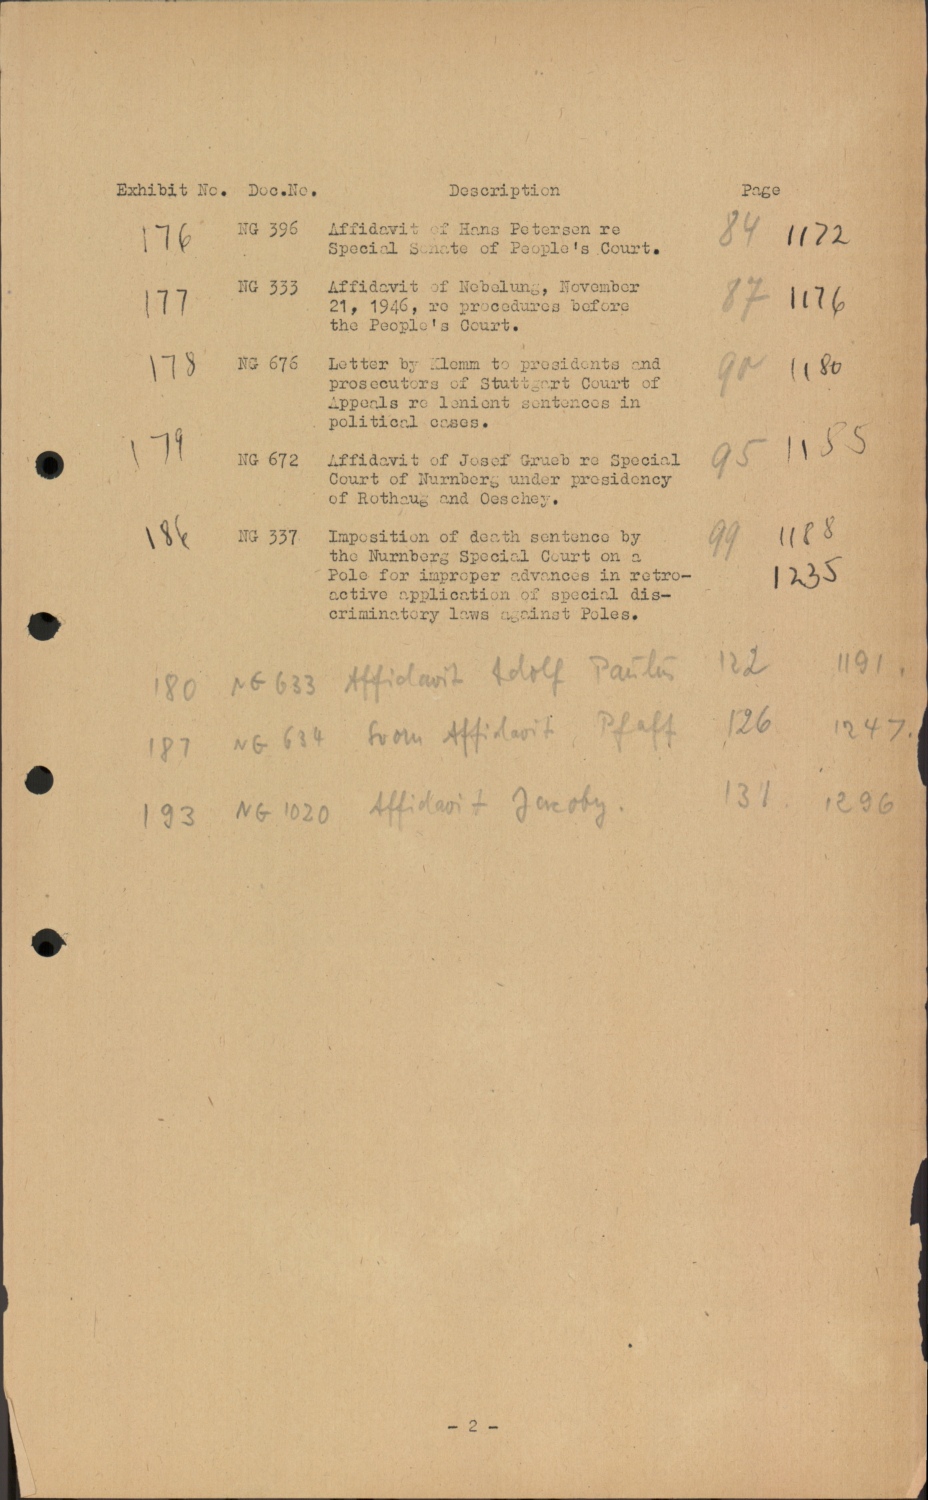 Exhibit No. Doc.No. Description Page
176 NG 396 Affidavit of Hans Petersen re 84 1172
Special Senate of People's Court.
177 NG 333 Affidavit of Nebelung, November 87 1176
21, 1946, re procedures before
the People's Court.
178 NG 676 Letter by Klemm to presidents and 90 1180
prosecutors of Stuttgart Court of
Appeals re lenient sentences in
political cases.
179 NG 672 Affidavit of Josef Grueb re Special 95 1185
Court of Nurnberg under presidency
of Rothaug and Oeschey.
186 NG 337 Imposition of death sentence by 99 1188
the Nurnberg Special Court on a
Pole for improper advances in retro- 1235
active application of special dis-
criminatory laws against Poles.
180 NG 633 Affidavit Adolf Paulus 122 1191.
187 NG 634 Sworn Affidavit, Pfaff 126 1247.
193 NG 1020 Affidavit Jacoby. 131. 1296
- 2 -